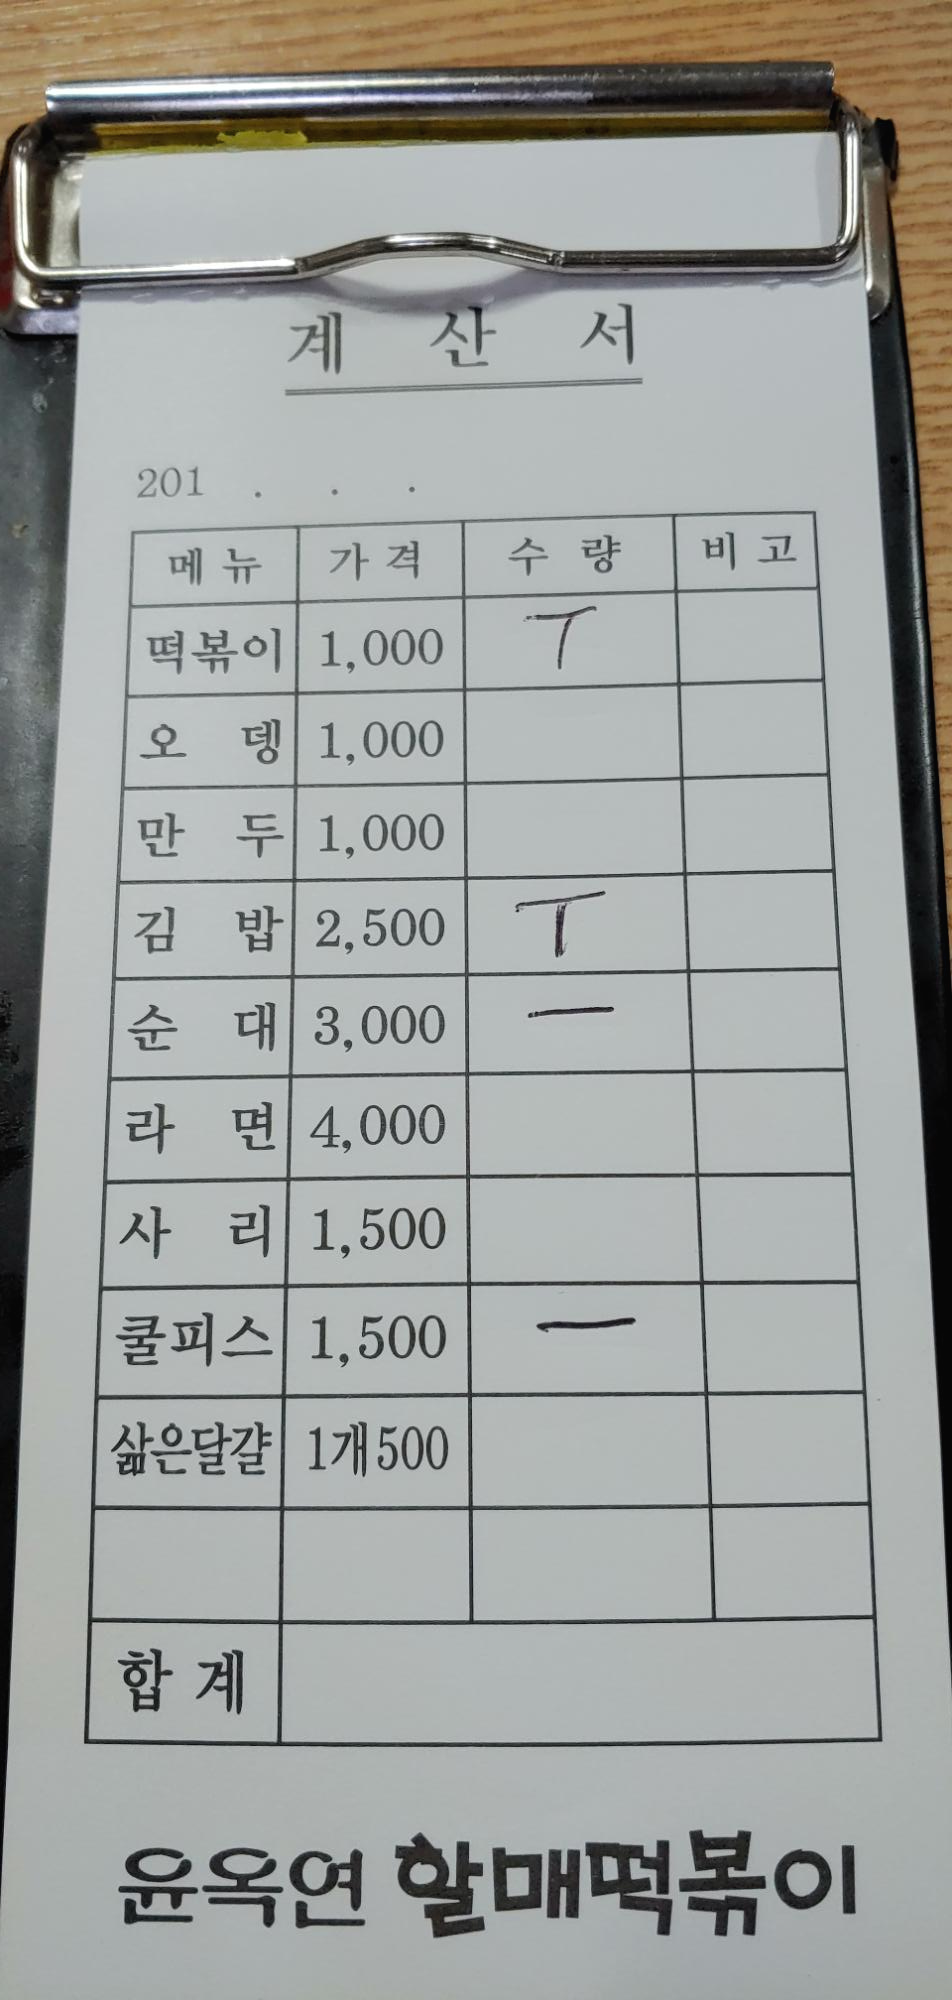 계 산 서
201 . . .
메 뉴 가 격 수 량 비 고
떡볶이 1,000 ㅜ
오 뎅 1,000
만 두 1,000
김 밥 2,500 ㅜ
순 대 3,000 ㅡ
라 면 4,000
사 리 1,500
쿨피스 1,500 ㅡ
삶은달걀 1개500
합 계
윤옥연 할매떡볶이